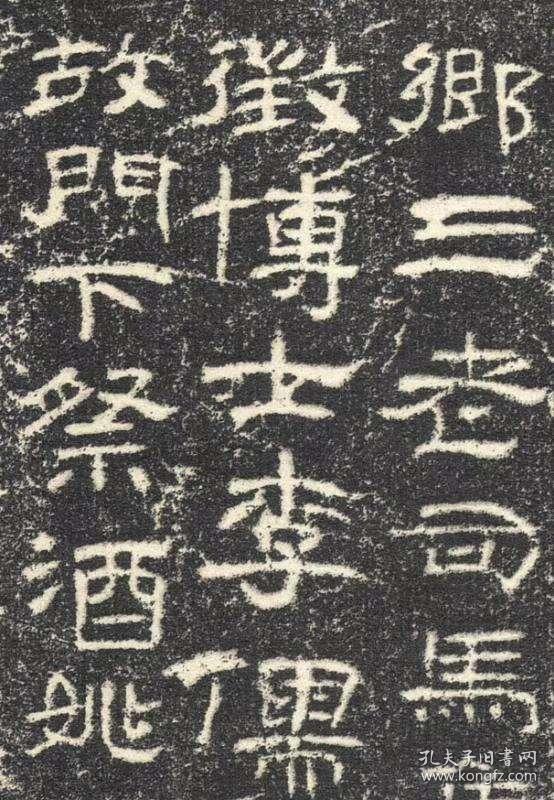 鄉三老司馬
徵博士李儒
故門下祭酒姚
孔夫子旧书网
www.kongfz.com